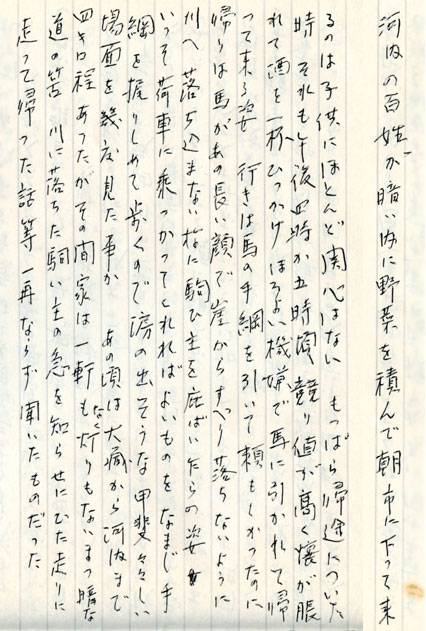 河内の百姓が暗い内に野菜を積んで朝市に下って来
るのは子供にほとんど関心はない　もっぱら帰途についた
時　それも午後四時か五時頃競り値が高く懐が脹
れて酒を一杯ひっかけほろよい機嫌で馬に引かれて帰
って来る姿　行きは馬の手綱を引いて頼もしかったのに
帰りは馬があの長い顔で崖からすべり落ちないように
川へ落ち込まない様に駒ひ主を庇ばいたらの姿
いっそ荷車に乗っかってくれればよいものをなまじ手
綱を握りしめて歩くので涙の出そうな甲斐々々しい
場面を幾度見た事か　あの頃は大　から河内まで
四キロ程あったがその間家は一軒もなく灯りもないまっ暗な
道の筈　川に落ちた駒い主の急を知らせにひた走りに
走って帰った話等一再ならず聞いたものだった